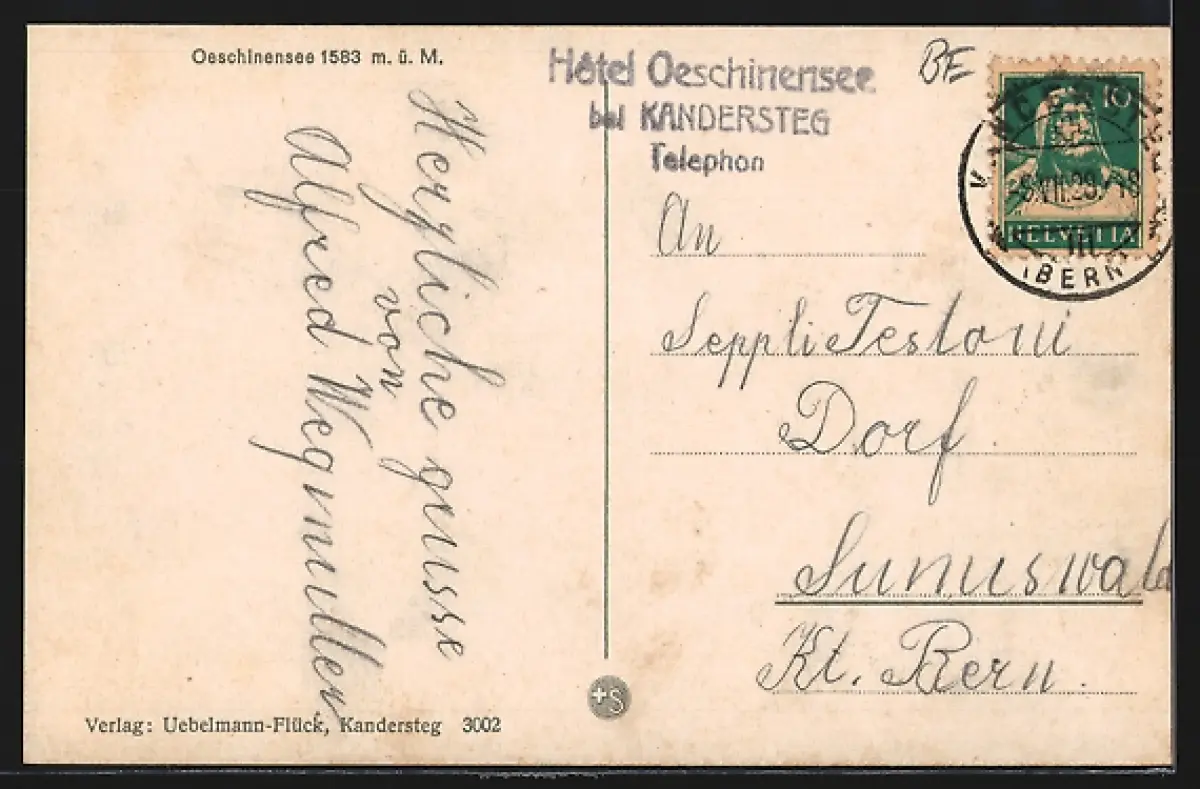 Oeschinensee 1583 m. ü. M.
Herzliche grüsse
von
Alfred Wegmüller
Verlag: Uebelmann-Flück, Kandersteg 3002
Hôtel Oeschinensee
bei KANDERSTEG
Telephon
BE
10
HELVETIA
(BERN
An
Seppli Testoni
Dorf
Sumiswald
Kt. Bern.
+S